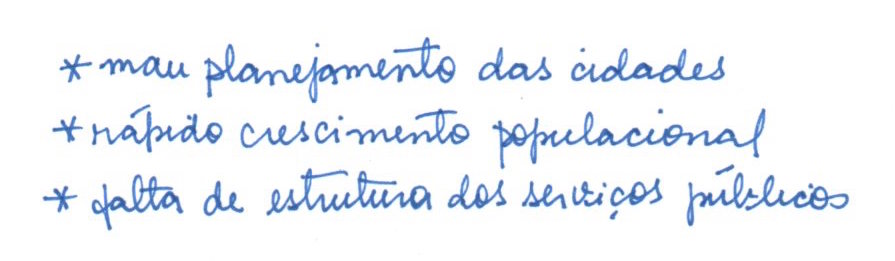 * mau planejamento das cidades
* rápido crescimento populacional
* falta de estrutura dos serviços públicos